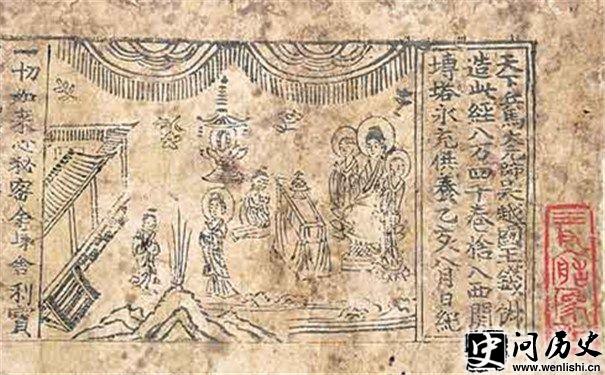 天下兵馬大元帥吳越國王錢俶
造此經八万四千卷捨入西關
塼塔永充供養乙亥八月日紀
一切如來心秘密全身舍利寶
问历史
www.wenlishi.cn